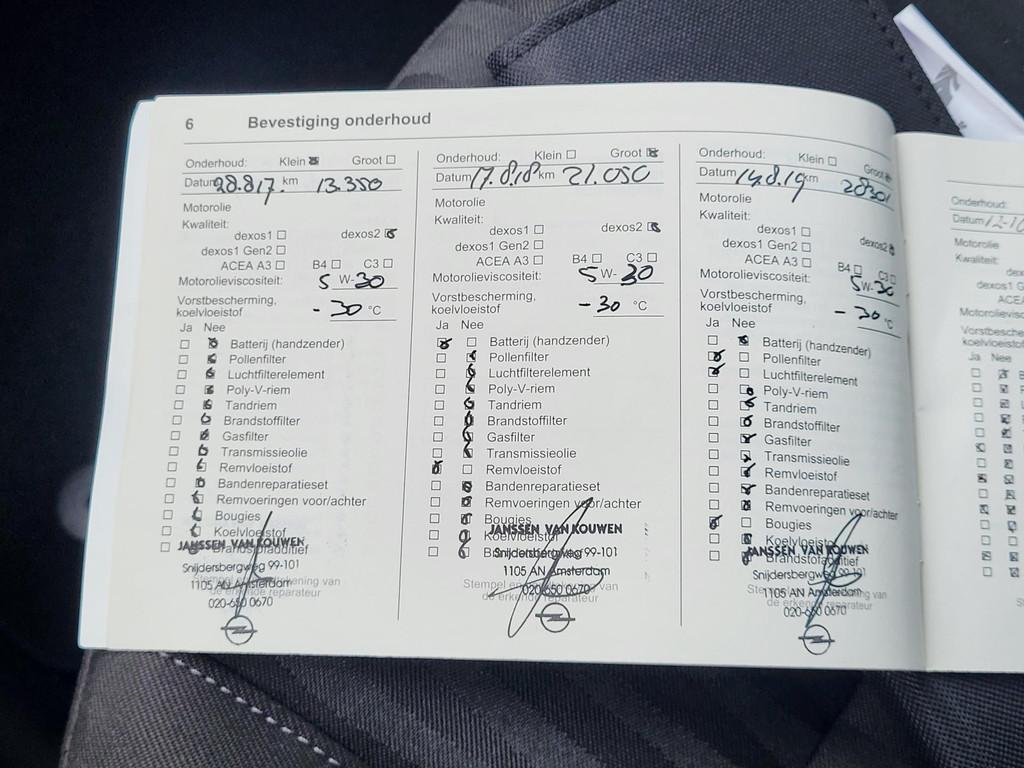 6 Bevestiging onderhoud
Onderhoud: Klein Groot
Datum 28.8.17. km 13.350
Motorolie
Kwaliteit:
dexos1 dexos2
dexos1 Gen2
ACEA A3 B4 C3
Motorolieviscositeit: 5 W-30
Vorstbescherming,
koelvloeistof - 30 °C
Ja Nee
Batterij (handzender)
Pollenfilter
Luchtfilterelement
Poly-V-riem
Tandriem
Brandstoffilter
Gasfilter
Transmissieolie
Remvloeistof
Bandenreparatieset
Remvoeringen voor/achter
Bougies
Koelvloeistof
Brandstofadditief
JANSSEN VAN KOUWEN
Snijdersbergweg 99-101
1105 AN Amsterdam
020-650 0670
Onderhoud: Klein Groot
Datum 17.8.18 km 21.050
Motorolie
Kwaliteit:
dexos1 dexos2
dexos1 Gen2
ACEA A3 B4 C3
Motorolieviscositeit: 5 W-30
Vorstbescherming,
koelvloeistof - 30 °C
Ja Nee
Batterij (handzender)
Pollenfilter
Luchtfilterelement
Poly-V-riem
Tandriem
Brandstoffilter
Gasfilter
Transmissieolie
Remvloeistof
Bandenreparatieset
Remvoeringen voor/achter
Bougies
Koelvloeistof
Brandstofadditief
JANSSEN VAN KOUWEN
Snijdersbergweg 99-101
1105 AN Amsterdam
Stempel en van
020-650 0670
de erkende reparateur
Onderhoud: Klein Groot
Datum 14.8.19 km 28301
Motorolie
Kwaliteit:
dexos1 dexos2
dexos1 Gen2
ACEA A3 B4 C3
Motorolieviscositeit: 5W-30
Vorstbescherming,
koelvloeistof - 30 °C
Ja Nee
Batterij (handzender)
Pollenfilter
Luchtfilterelement
Poly-V-riem
Tandriem
Brandstoffilter
Gasfilter
Transmissieolie
Remvloeistof
Bandenreparatieset
Remvoeringen voor/achter
Bougies
Brandstofadditief
JANSSEN VAN KOUWEN
Snijdersbergweg 99-101
1105 AN Amsterdam
020-650 0670
de erkende reparateur
Onderhoud:
Datum 12-10
Motorolie
Kwaliteit:
dexos1
Ja Nee